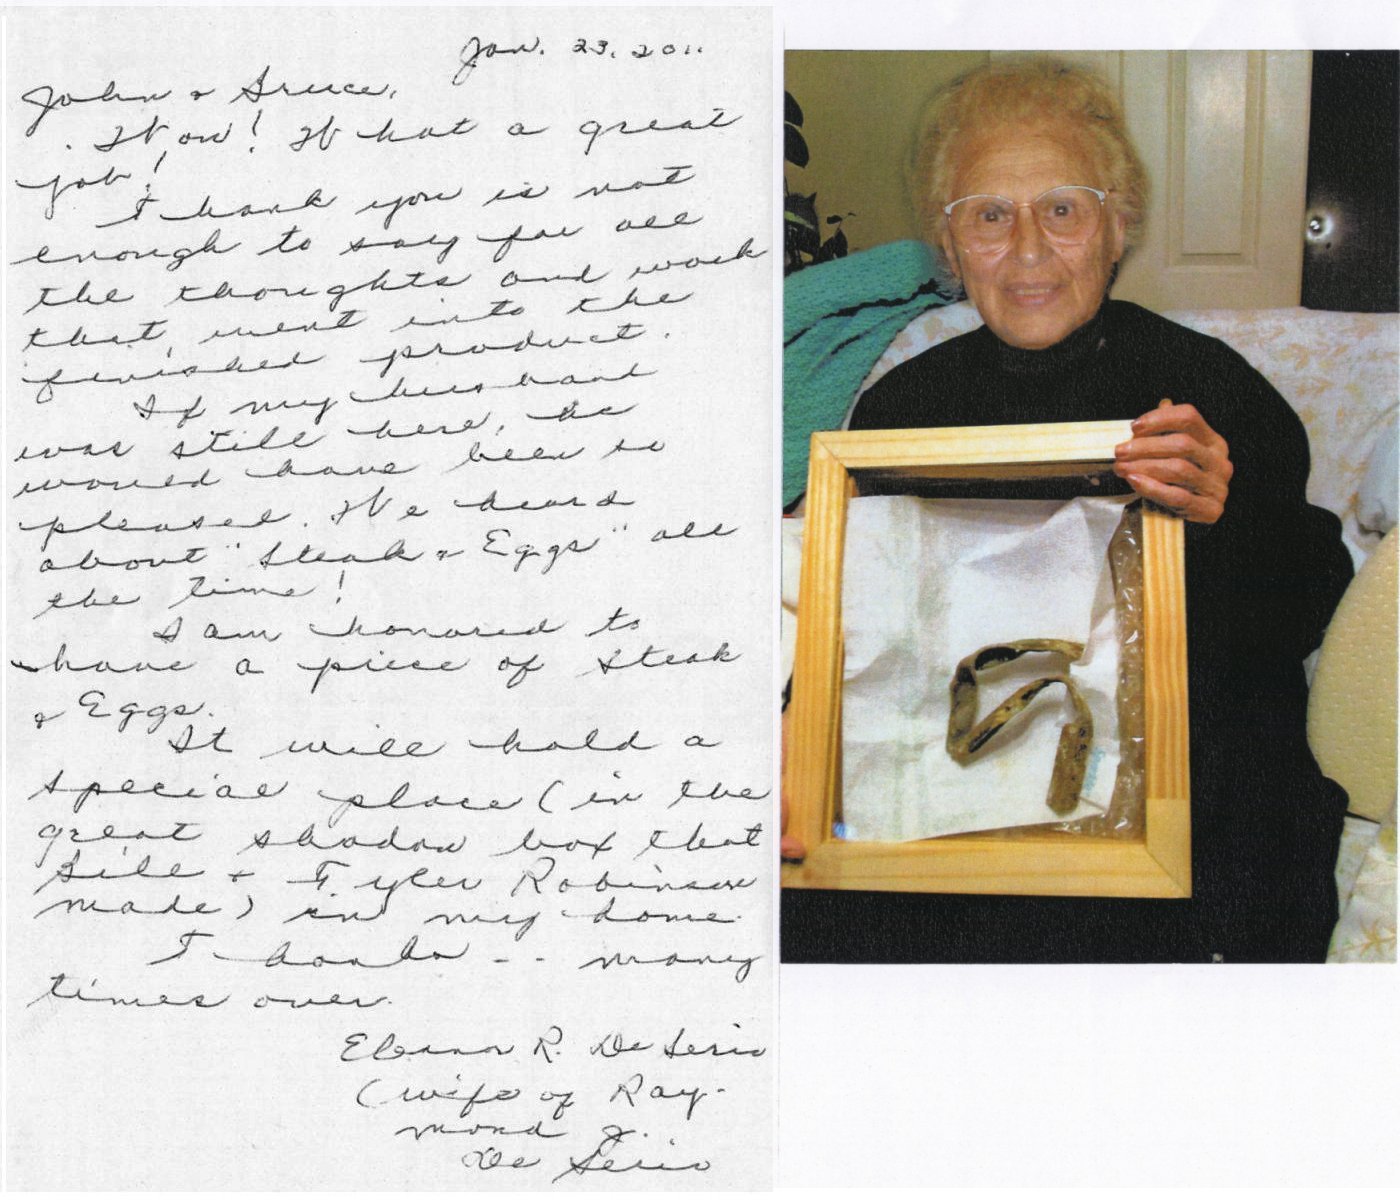 Jan. 23, 2011
John & Bruce,
Wow! What a great
job!
Thank you is not
enough to say for all
the thoughts and work
that went into the
finished product.
If my husband
was still here, he
would have been so
pleased. We heard
about "Steak & Eggs" all
the time!
I am honored to
have a piece of Steak
& Eggs.
It will hold a
special place (in the
great shadow box that
& Tyler Robinson
made) in my home.
Thanks -- many
times over.
Eleanor R. De Serio
(wife of Ray-
mond J.
De Serio